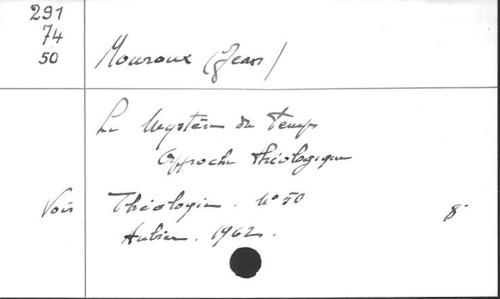 291
74
50
Mouroux (Jean)
Le Mystère du Temps
Approche théologique
Voir Théologie. N° 50 8°
Aubier. 1962.